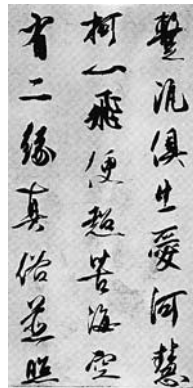 蹔汎俱出愛河慧
柯一飛便超苦海空
有二緣真俗並照